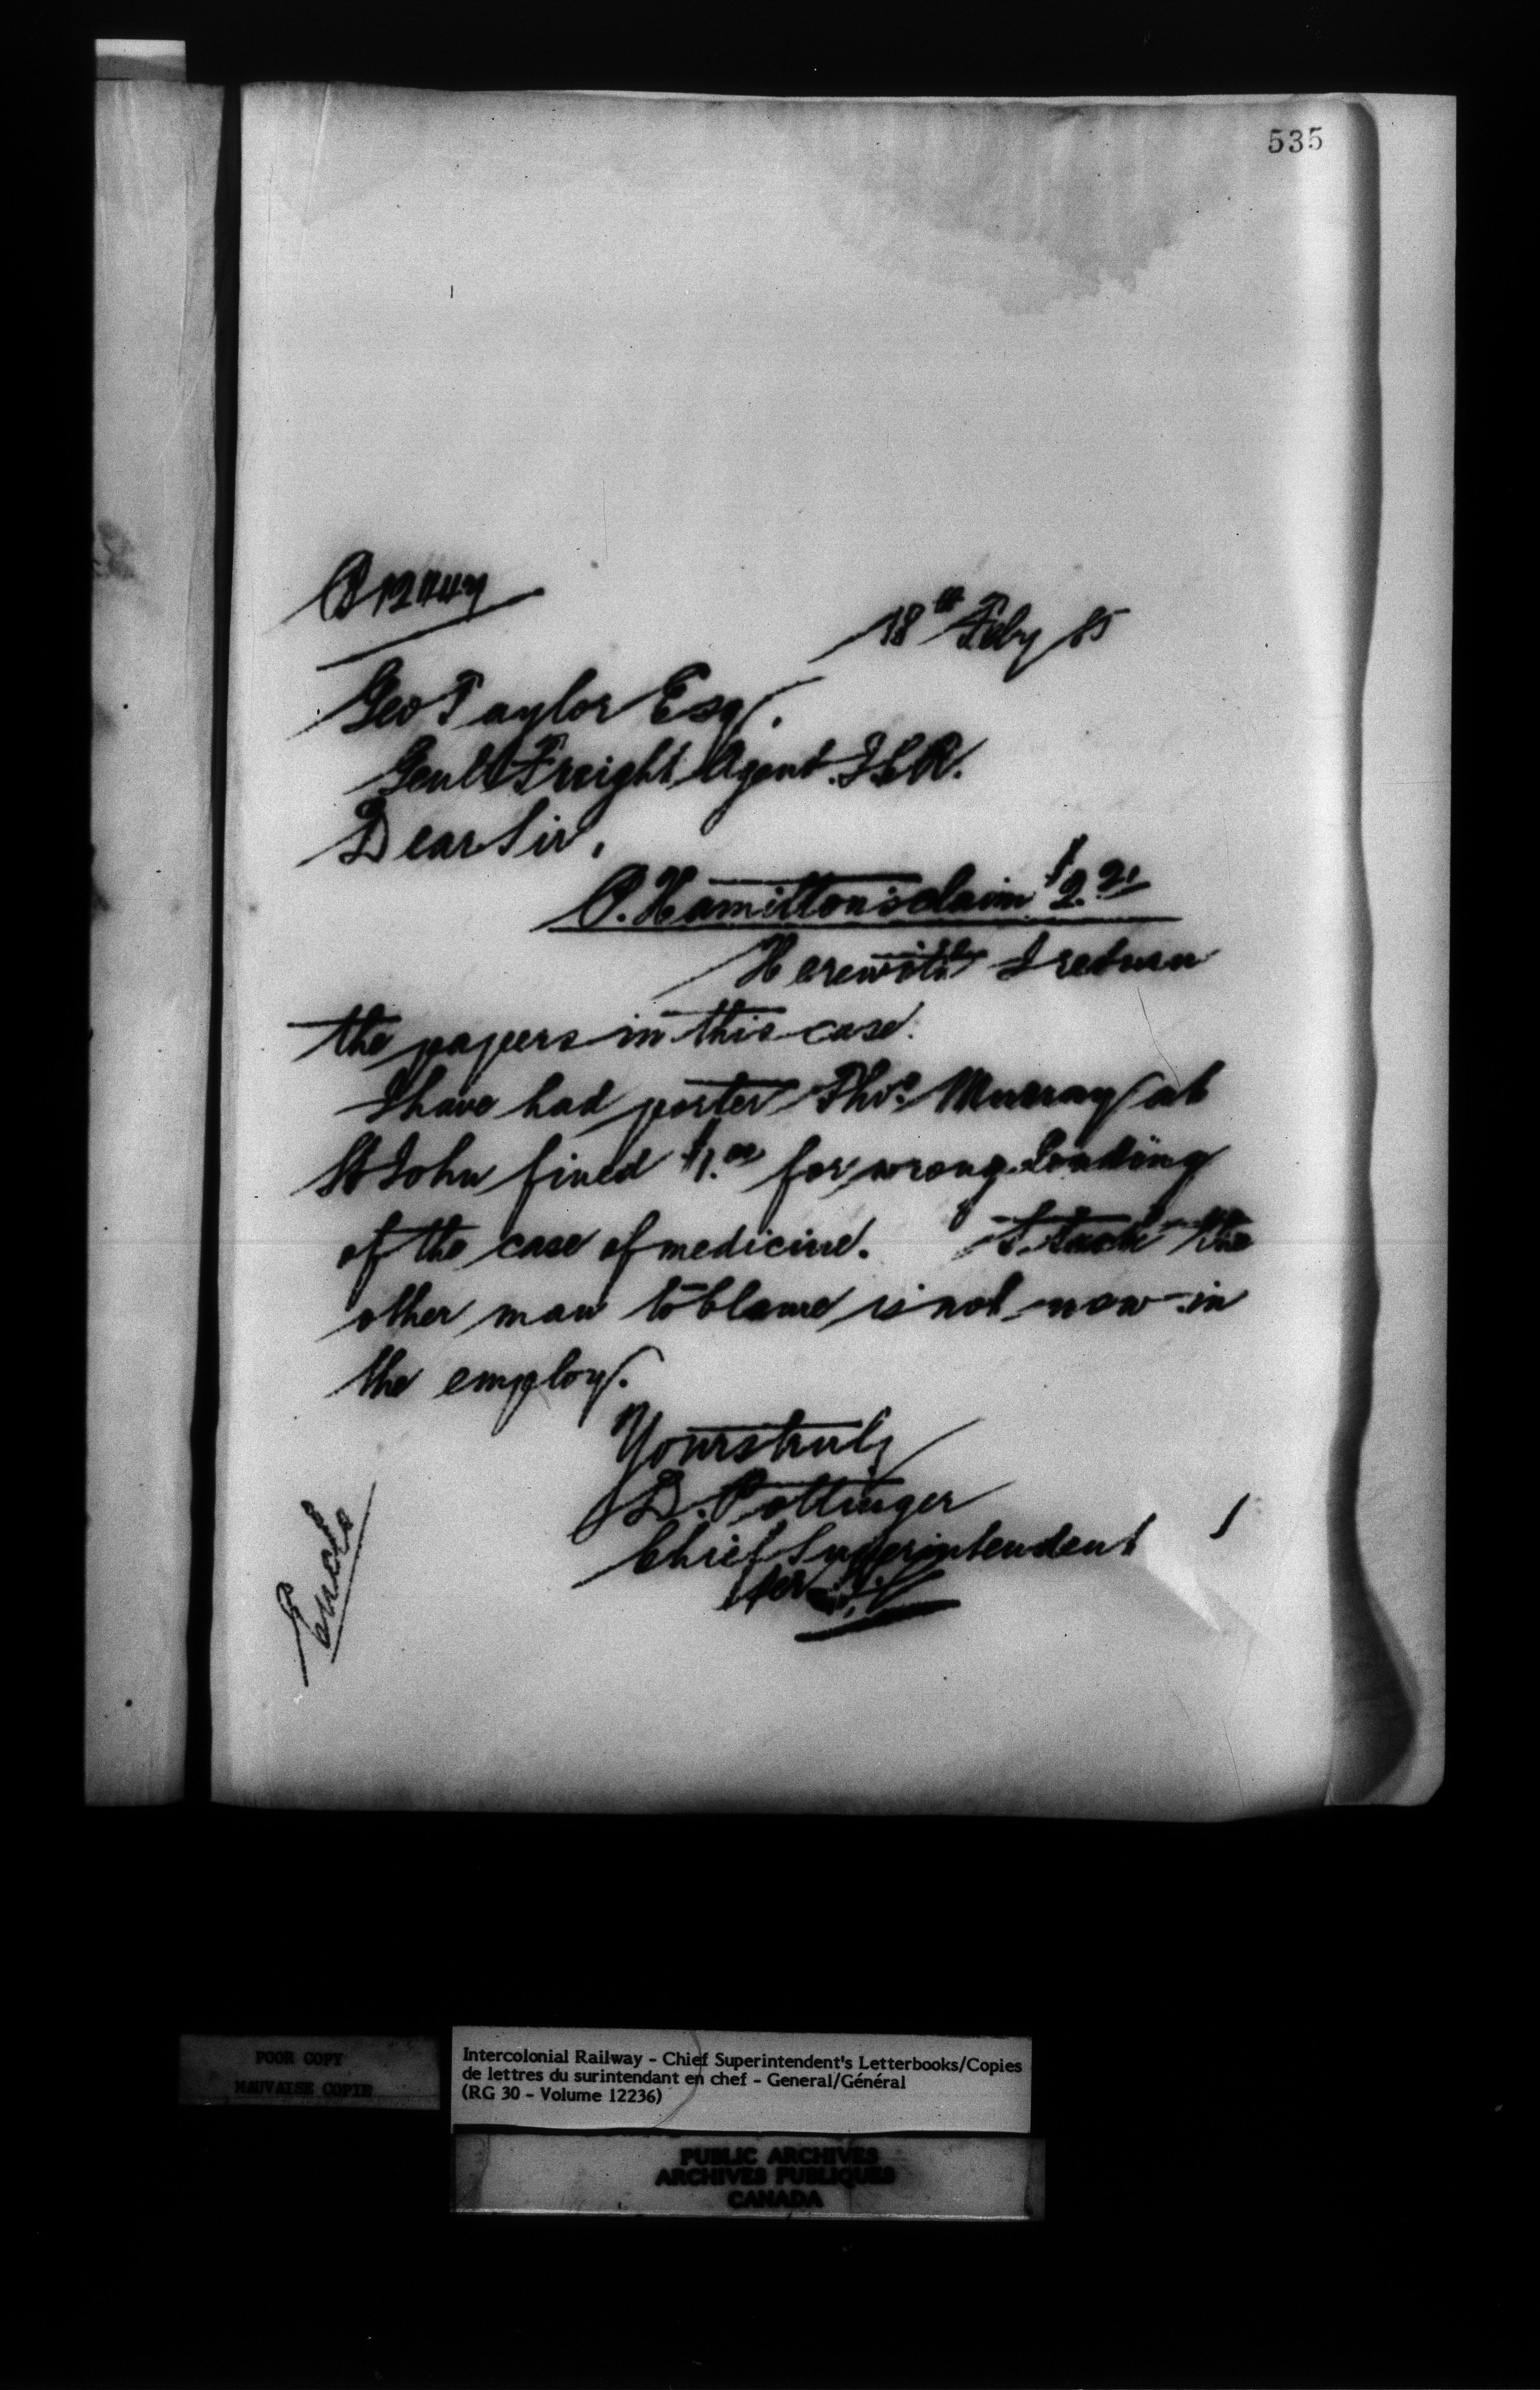 535
18th Feby 85
Geo Taylor Esq.
Genl Freight Agent I.C.R.
Dear Sir,
P. Hamilton's claim $2.21
Herewith I return
the papers in this case.
I have had porter Thos. Murray at
St John fined $1.00 for wrong loading
of the case of medicine. the
other man to blame is not now in
the employ.
Yours truly
D. Pottinger
Chief Superintendent
per
Encls
POOR COPY
MAUVAISE COPIE
Intercolonial Railway - Chief Superintendent's Letterbooks/Copies
de lettres du surintendant en chef - General/Général
(RG 30 - Volume 12236)
PUBLIC ARCHIVES
ARCHIVES PUBLIQUES
CANADA